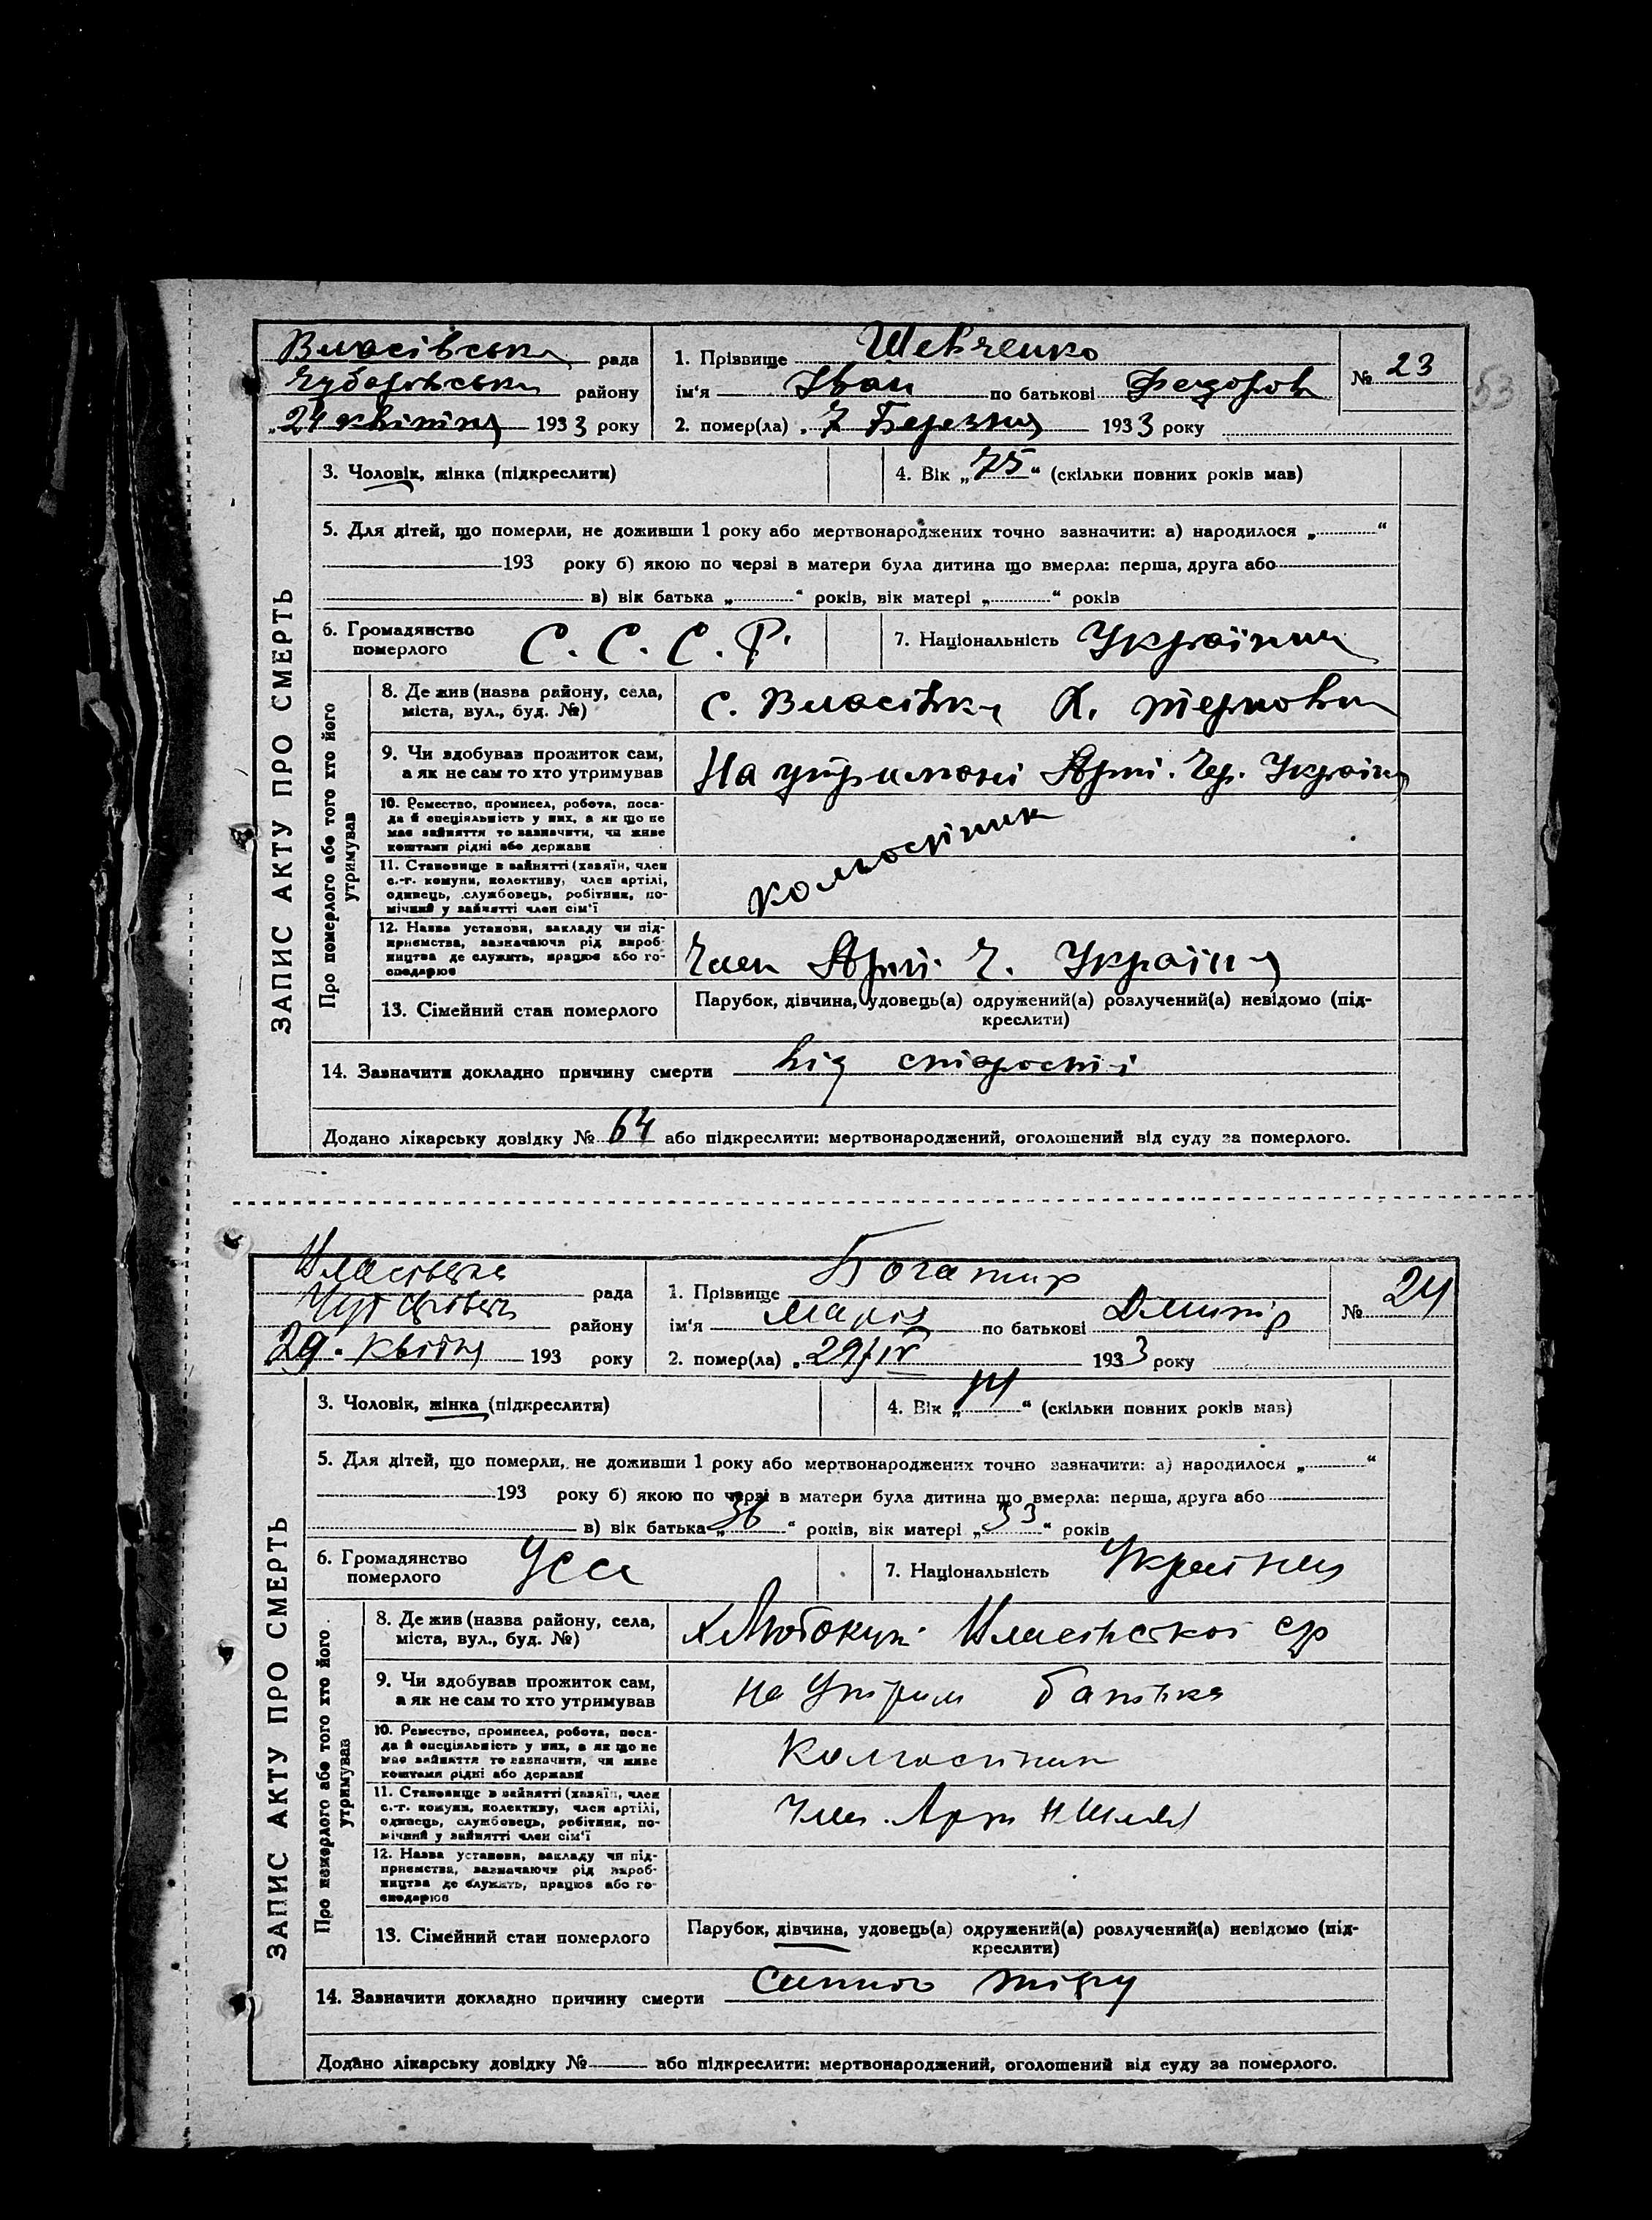 Власівська рада
Чубарівськ району
„24 квітня 1933 року
1. Прізвище Шевченко
ім'я Іван по батькові Федоров
2. помер(ла) „7 Березня 1933 року
№ 23
53
ЗАПИС АКТУ ПРО СМЕРТЬ
3. Чоловік, жінка (підкреслити)
4. Вік „75“ (скільки повних років мав)
5. Для дітей, що померли, не доживши 1 року або мертвонароджених точно зазначити: а) народилося „ “
193 року б) якою по черзі в матери була дитина що вмерла: перша, друга або
в) вік батька „ “ років, вік матері „ “ років
6. Громадянство померлого С. С. С. Р.
7. Національність Українець
Про померлого або того хто його утримував
8. Де жив (назва району, села,
міста, вул., буд. №)
с. Власівка Х. Тернова
9. Чи здобував прожиток сам,
а як не сам то хто утримував
На утримані Арті. Чер. Україна
10. Ремество, промисел, робота, поса-
да й спеціяльність у них, а як що не
має зайняття то зазначити, чи живе
коштами рідні або держави
колгоспник
11. Становище в зайнятті (хазяїн, член
с.-г. комуни, колективу, член артілі,
одинець, службовець, робітник, по-
мічний у зайнятті член сім'ї
12. Назва установи, закладу чи під-
приємства, зазначаючи рід вироб-
ництва де служить, працює або го-
сподарює
Член Арті. Ч. Україна
13. Сімейний стан померлого
Парубок, дівчина, удовець(а) одружений(а) розлучений(а) невідомо (під-
креслити)
14. Зазначити докладно причину смерти від старості
Додано лікарську довідку № 64 або підкреслити: мертвонароджений, оголошений від суду за померлого.
Власівська рада
району
29. Квітня 193 року
1. Прізвище Богатир
ім'я Марія по батькові Дмитр
2. помер(ла) „29/IV 1933 року
№ 24
ЗАПИС АКТУ ПРО СМЕРТЬ
3. Чоловік, жінка (підкреслити)
4. Вік „14“ (скільки повних років мав)
5. Для дітей, що померли, не доживши 1 року або мертвонароджених точно зазначити: а) народилося „ “
193 року б) якою по черзі в матери була дитина що вмерла: перша, друга або
в) вік батька „36“ років, вік матері „33“ років
6. Громадянство померлого Усср
7. Національність Українка
Про померлого або того хто його утримував
8. Де жив (назва району, села,
міста, вул., буд. №)
Власівської ср
9. Чи здобував прожиток сам,
а як не сам то хто утримував
На Утрим батька
10. Ремество, промисел, робота, поса-
да й спеціяльність у них, а як що не
має зайняття то зазначити, чи живе
коштами рідні або держави
Колгоспник
11. Становище в зайнятті (хазяїн, член
с.-г. комуни, колективу, член артілі,
одинець, службовець, робітник, по-
мічний у зайнятті член сім'ї
Член Арт Н Шлях
12. Назва установи, закладу чи під-
приємства, зазначаючи рід вироб-
ництва де служить, працює або го-
сподарює
13. Сімейний стан померлого
Парубок, дівчина, удовець(а) одружений(а) розлучений(а) невідомо (під-
креслити)
14. Зазначити докладно причину смерти Сипного тифу
Додано лікарську довідку № або підкреслити: мертвонароджений, оголошений від суду за померлого.